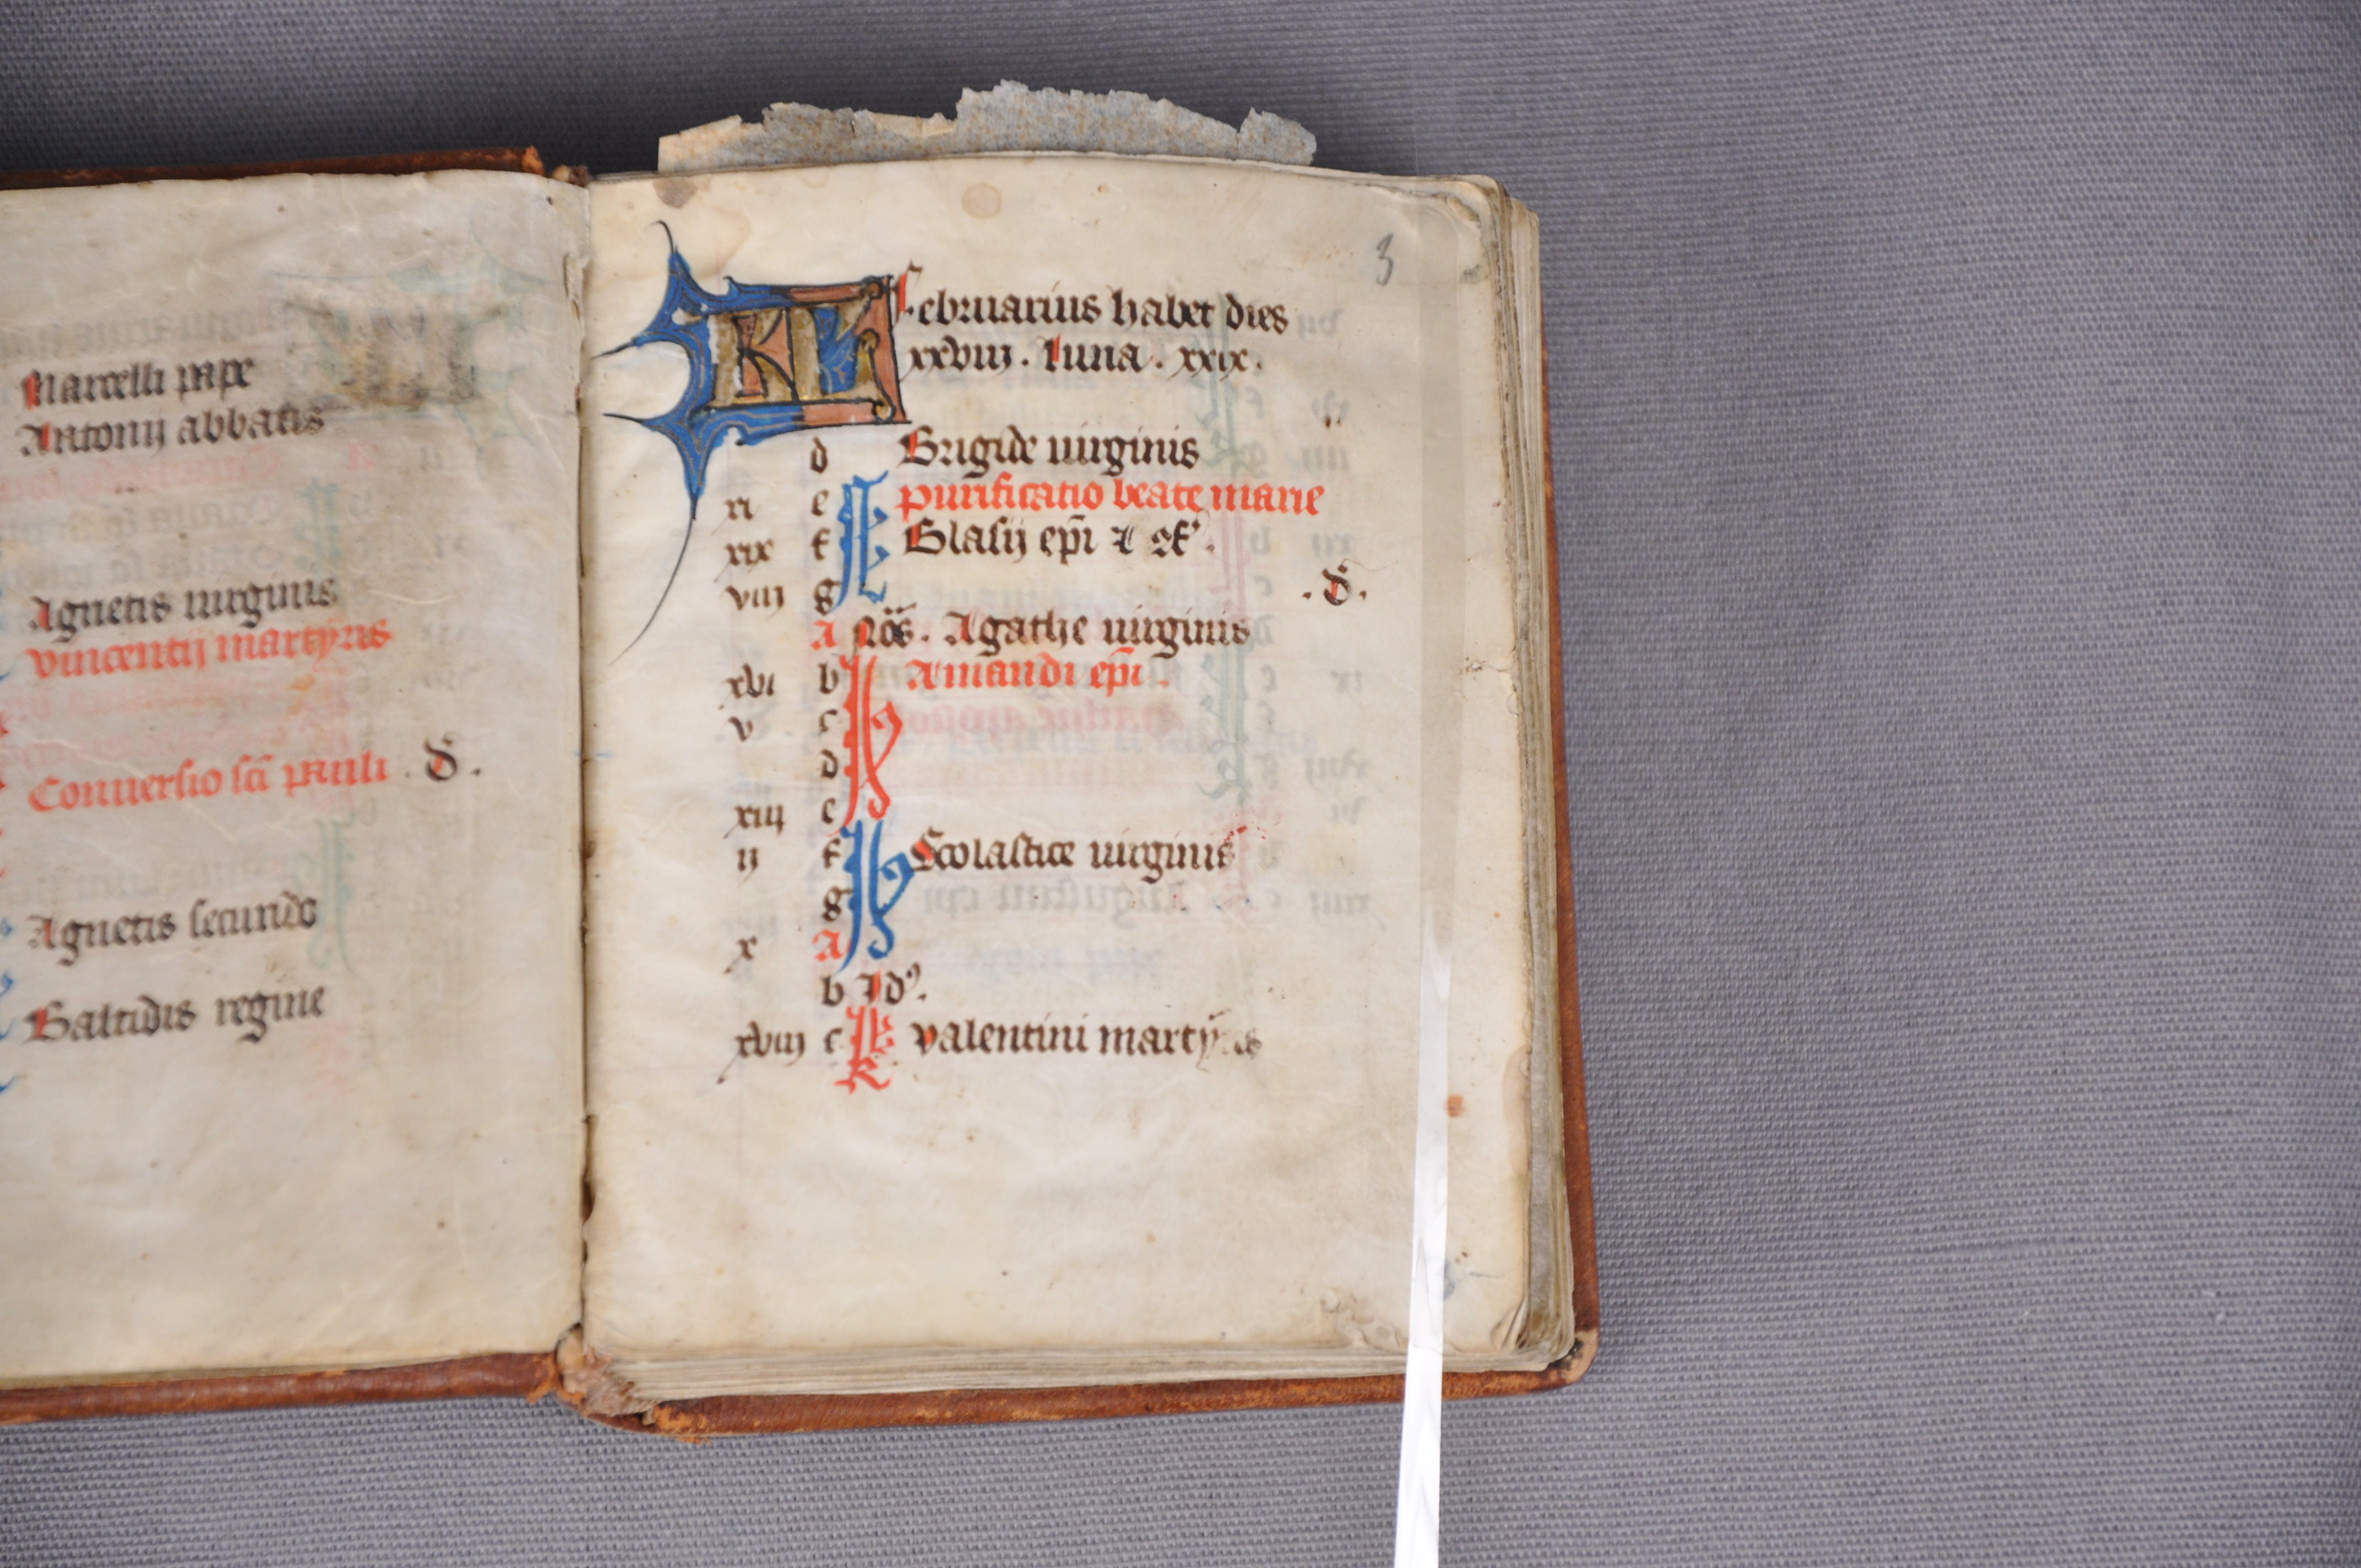 Marcelli pape
Antonij abbatis
Agnetis uirginis
Vincentij martyris
Conuersio sci pauli . d .
Agnetis secundo
Baltidis regine
3
KL Februarius habet dies
xxviij . luna . xxix .
d Brigide uirginis
xi e purificatio beate marie
xix f Blasij epi
viij g . d .
A Nos . Agathe uirginis
xvi b Amandi epi .
v c
d
xiij e
ij f Scolastice uirginis
g
x A
b Id9 .
xviij c valentini martyris